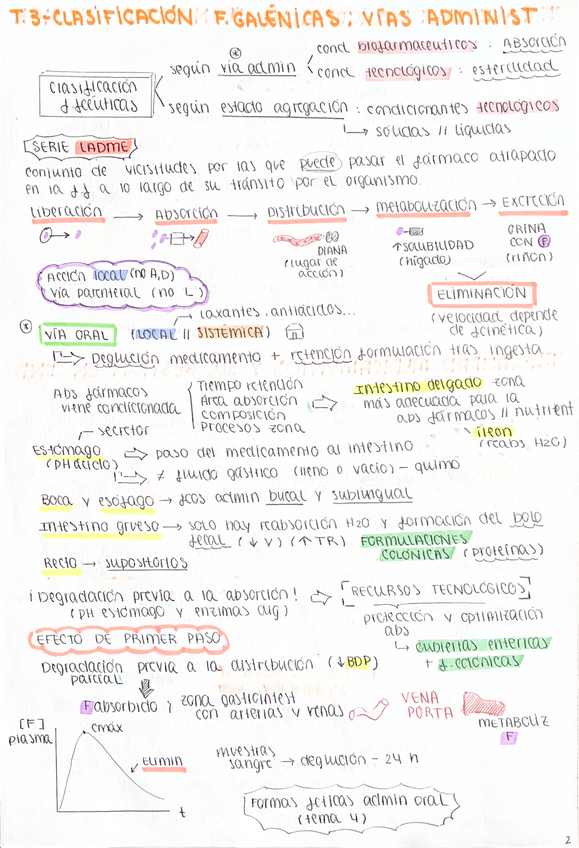 T.3-CLASIFICACIÓN F. GALÉNICAS: VÍAS ADMINIST
según vía admin * cond biofarmaceuticos: ABSORCIÓN
cond tecnológicos: esterilidad
Clasificación
f. fcéuticas
según estado agregación: condicionantes tecnológicos
sólidas // líquidas
SERIE LADME
conjunto de vicisitudes por las que puede pasar el fármaco atrapado
en la f.f a lo largo de su tránsito por el organismo.
Liberación → Absorción → Distribución → Metabolización → EXCRECIÓN
DIANA
(lugar de
acción)
↑SOLUBILIDAD
(hígado)
ORINA
CON F
(riñón)
Acción local (no A,D)
Vía parenteral (no L)
ELIMINACIÓN
(velocidad depende
de fcinética)
laxantes, antiácidos...
* VÍA ORAL (LOCAL // SISTÉMICA)
Deglución medicamento + retención formulación tras ingesta
Abs fármacos
viene condicionada
Tiempo retención
Área absorción
composición
Procesos zona
Intestino delgado zona
más adecuada para la
abs fármacos // nutrient
íleon
(reabs H2O)
secretor
Estómago
(pH ácido)
paso del medicamento al intestino
≠ fluido gástrico (lleno o vacío) - quimo
Boca y esófago → fcos admin bucal y sublingual
Intestino grueso → solo hay reabsorción H2O y formación del bolo
fecal (↓V) (↑TR) FORMULACIONES
COLÓNICAS (proteínas)
Recto → supositorios
¡Degradación previa a la absorción! ⇒ [RECURSOS TECNOLÓGICOS]
(pH estómago y enzimas dig)
protección y optimización
abs
cubiertas entéricas
+ f.colónicas
EFECTO DE PRIMER PASO
Degradación previa a la distribución (↓BDP)
parcial
F absorbido
zona gastrointest
con arterias y venas
VENA
PORTA
METABOLIZ
F
[F]
plasma
cmáx
ELIMIN
t
muestras
sangre → deglución - 24 h
Formas fcticas admin oral
(tema 4)
2